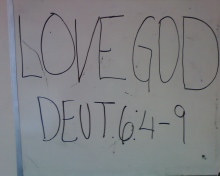 LOVE GOD
DEUT. 6:4-9